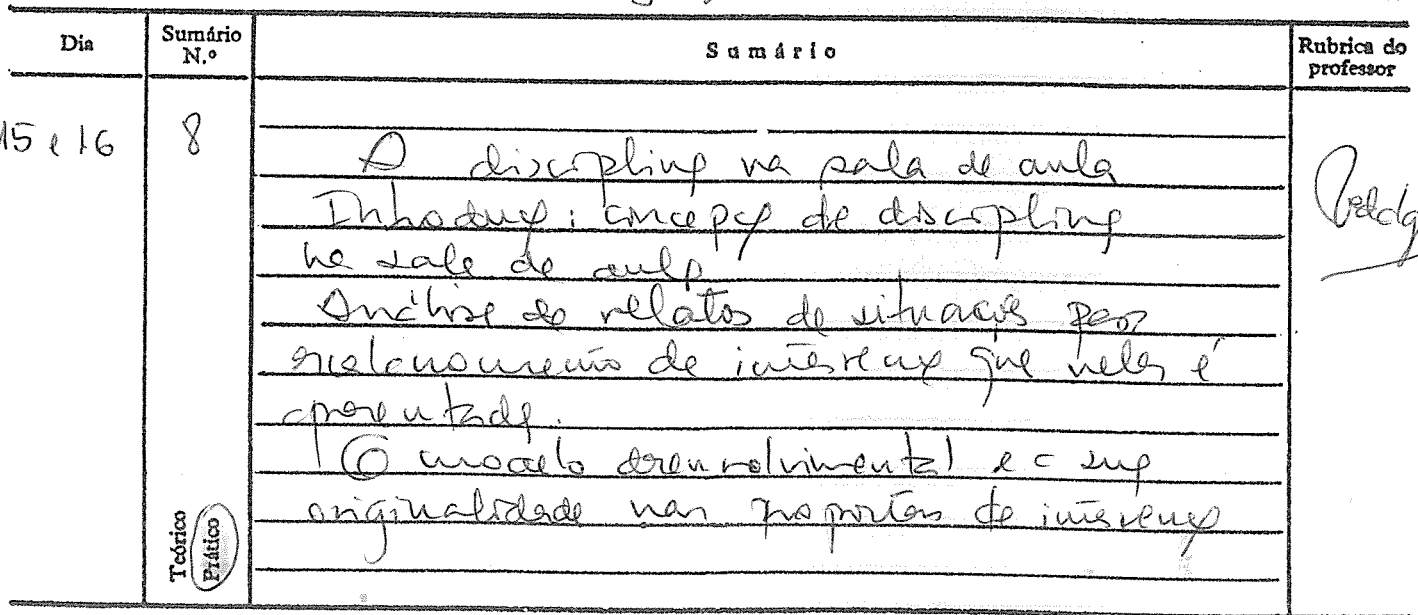 Dia
Sumário N.º
Sumário
Rubrica do professor
15 e 16
8
A disciplina na sala de aula
Introdução: concepção de disciplina
na sala de aula
Análise de relatos de situações para
de intervenção que neles é
apresentada.
O modelo desenvolvimental e a sua
originalidade nas propostas de intervenção
Teórico
Prático